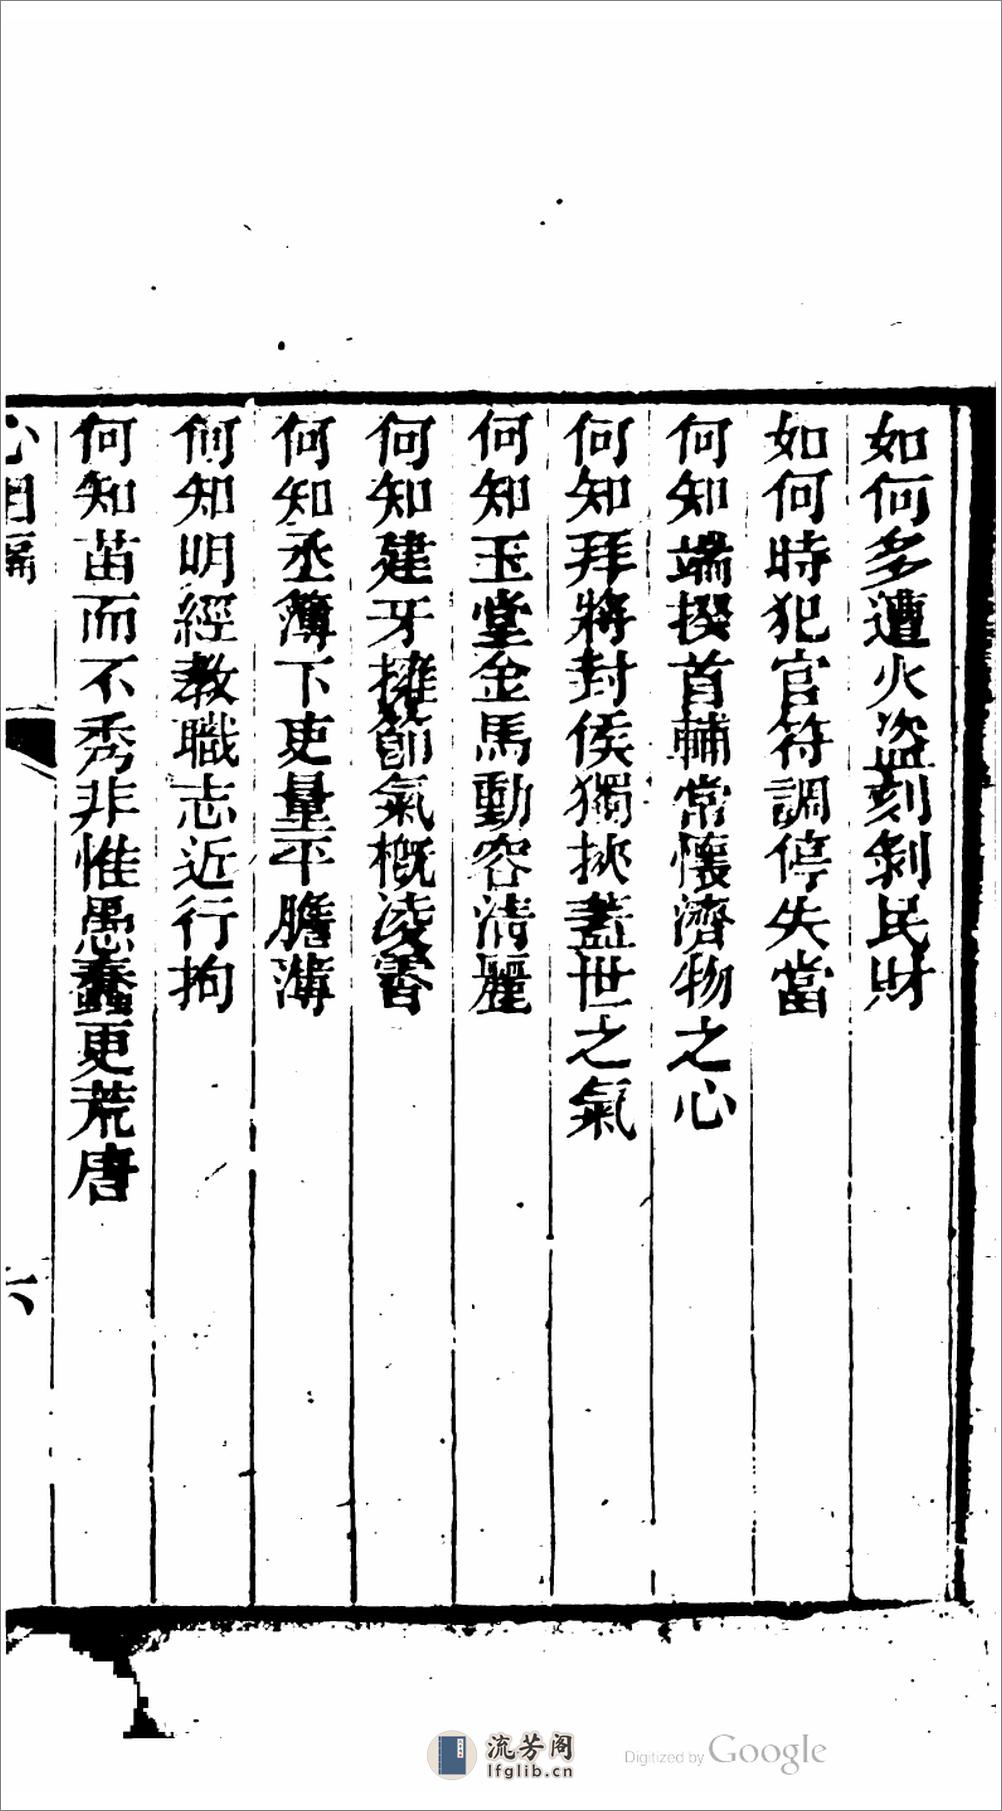 如何多遭火盜刻剝民財
如何時犯官符調停失當
何知端揆首輔常懷濟物之心
何知拜將封侯獨挾蓋世之氣
何知玉堂金馬動容清麗
何知建牙擁節氣概淩霄
何知丞簿下吏量平膽薄
何知明經教職志近行拘
何知苗而不秀非惟愚蠢更荒唐
心相編
六
流芳阁
lfglib.cn
Digitized by Google